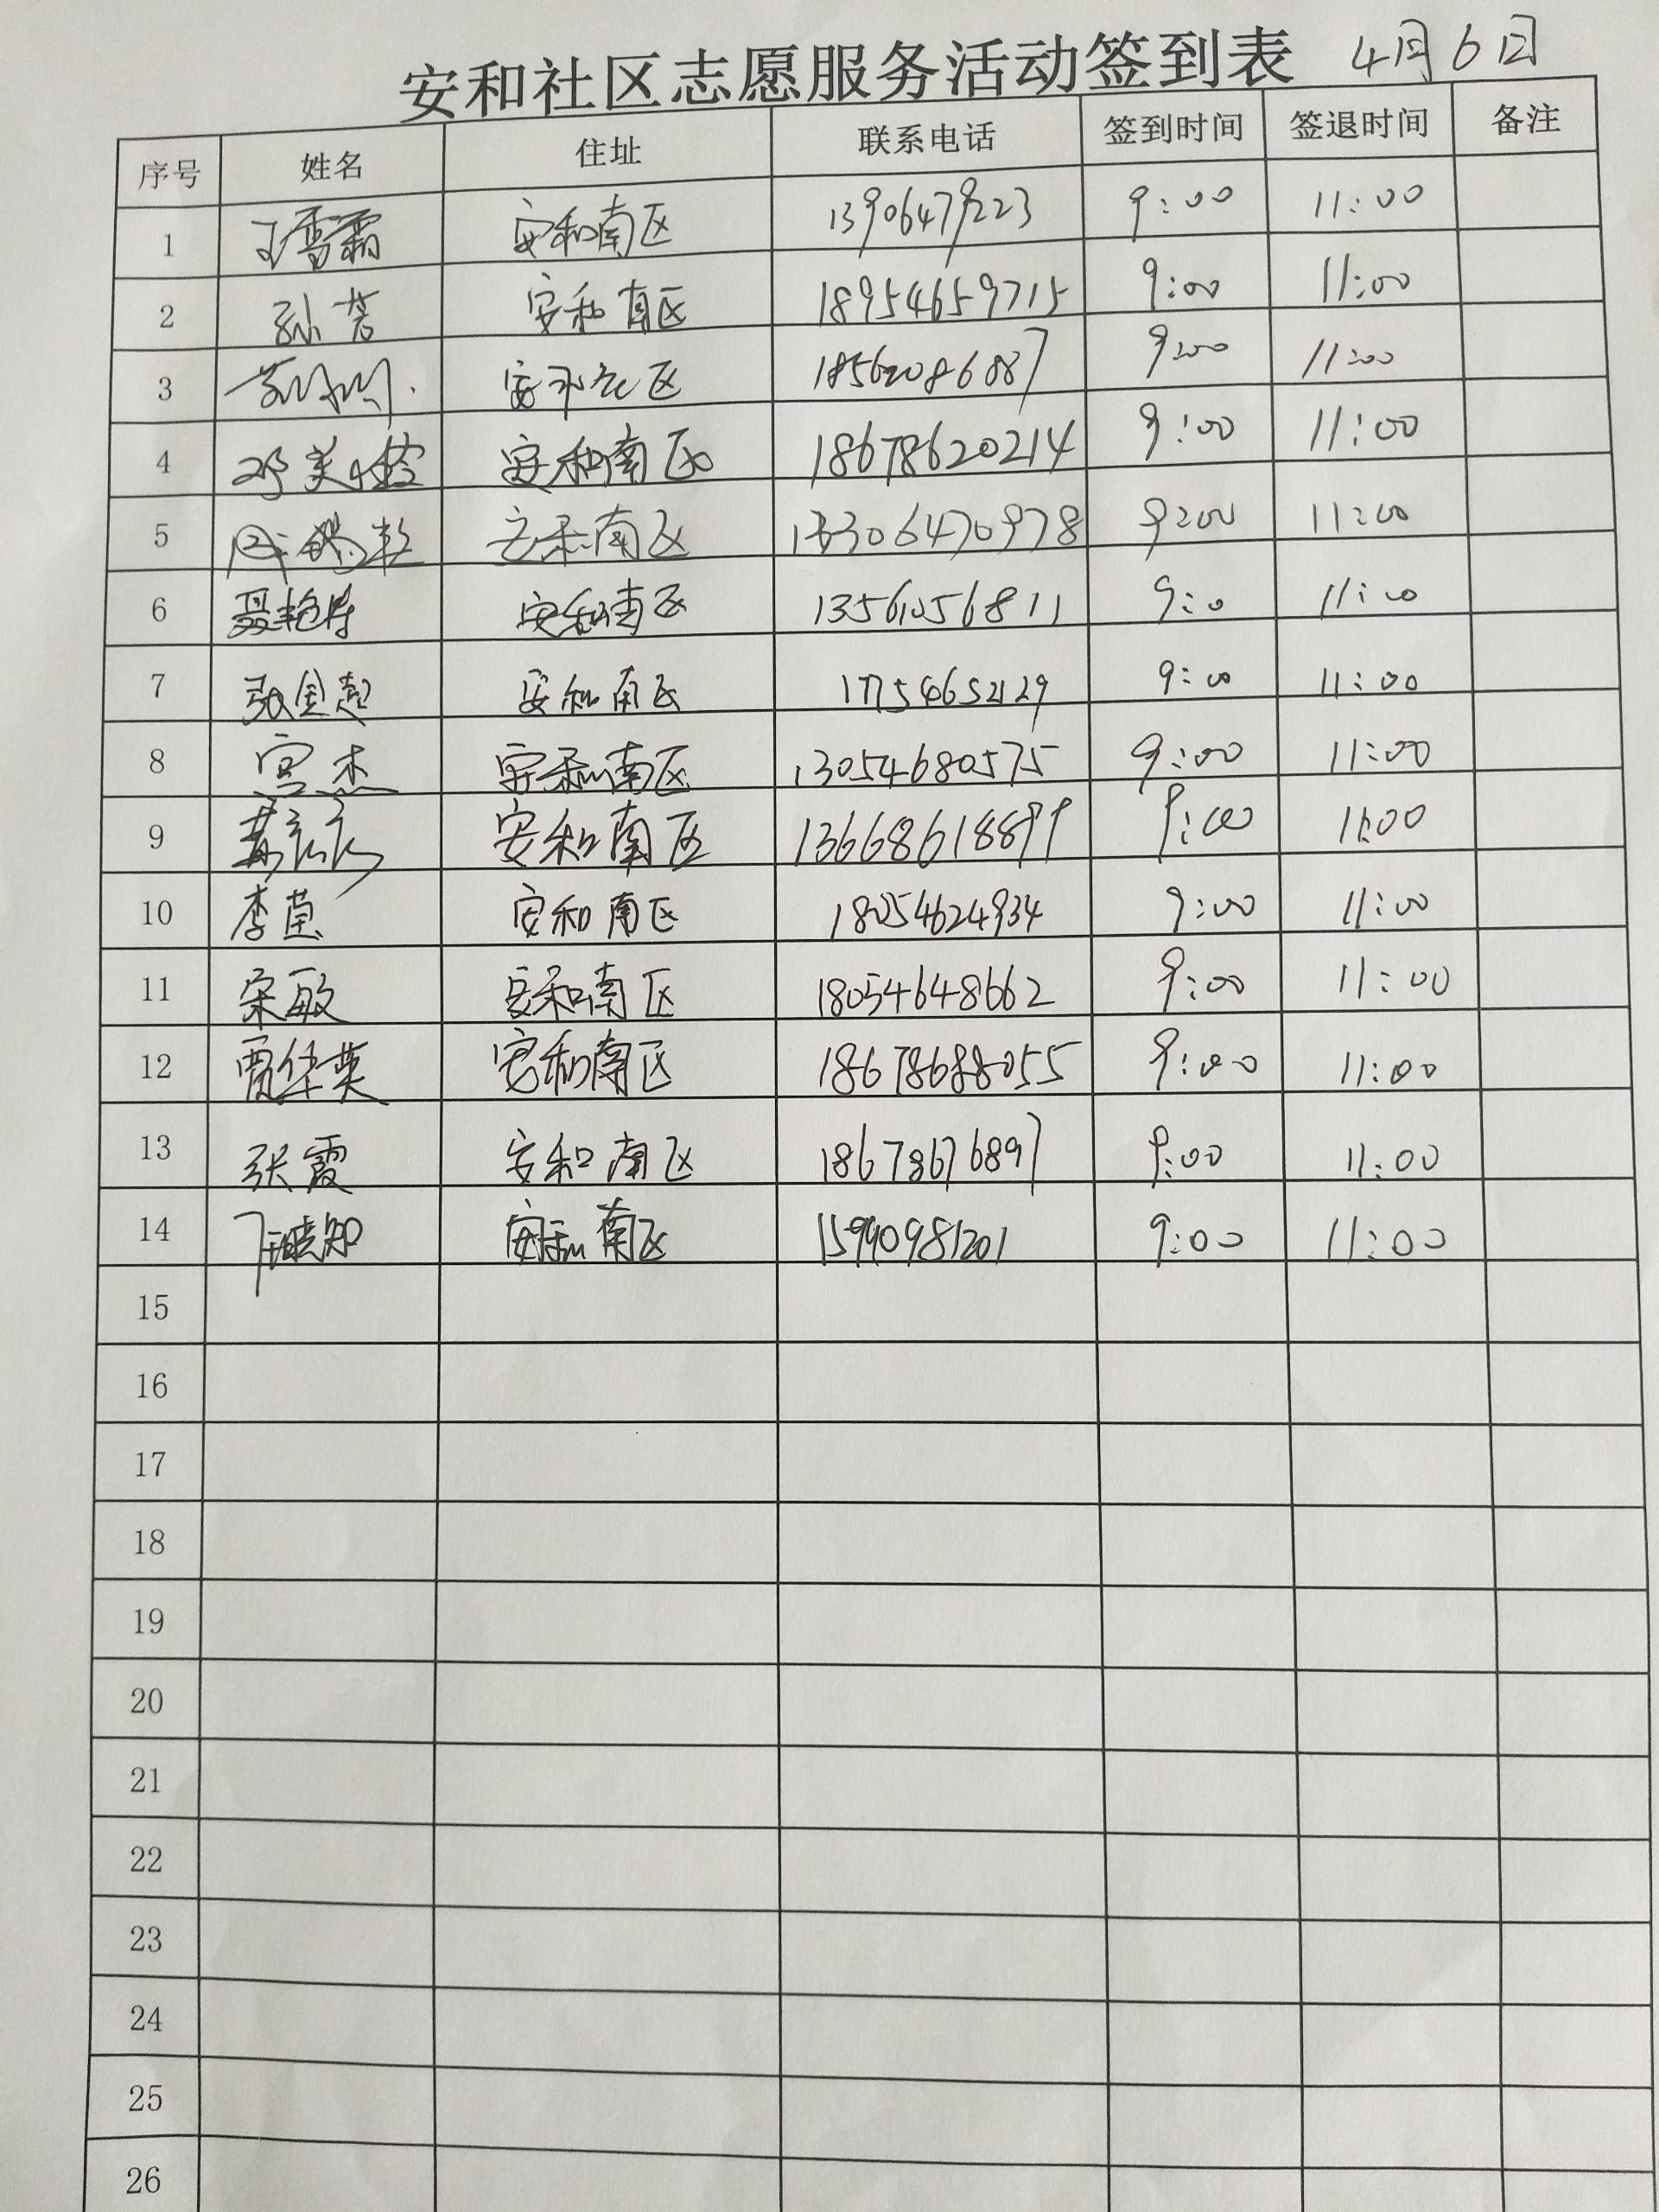 安和社区志愿服务活动签到表 4月6日
序号 姓名 住址 联系电话 签到时间 签退时间 备注
1 王雪霜 安和南区 13906479223 9:00 11:00
2 孙芳 安和南区 18954659715 9:00 11:00
3 18562086887 9:00 11:00
4 邓美玲 安和南区 18678620214 9:00 11:00
5 安和南区 13306470978 9:00 11:00
6 聂艳 安和南区 13561056811 9:00 11:00
7 张金超 安和南区 17754652129 9:00 11:00
8 宫杰 安和南区 13054680575 9:00 11:00
9 安和南区 13668618899 9:00 11:00
10 李莹 安和南区 18054624934 9:00 11:00
11 宋敏 安和南区 18054648662 9:00 11:00
12 贾华英 安和南区 18678688055 9:00 11:00
13 张霞 安和南区 18678676897 9:00 11:00
14 安和南区 15990981201 9:00 11:00
15
16
17
18
19
20
21
22
23
24
25
26